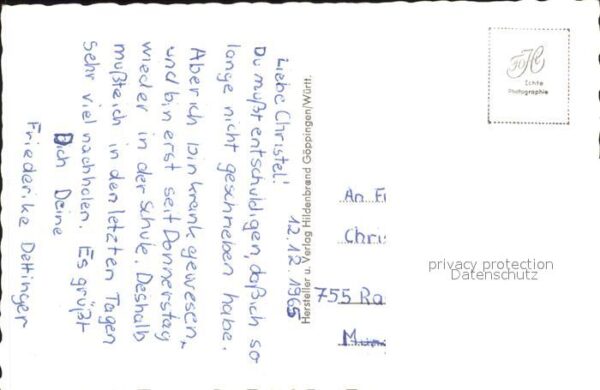 12.12.1965
Liebe Christel!
Du mußt entschuldigen, daß ich so
lange nicht geschrieben habe.
Aber ich bin krank gewesen,
und bin erst seit Donnerstag
wieder in der Schule. Deshalb
mußte ich in den letzten Tagen
sehr viel nachholen. Es grüßt
Dich Deine
Friederike Dettinger
Hersteller u. Verlag Hildenbrand Göppingen/Württ.
Echte
Photographie
An
Chris
755 Ra
privacy protection
Datenschutz